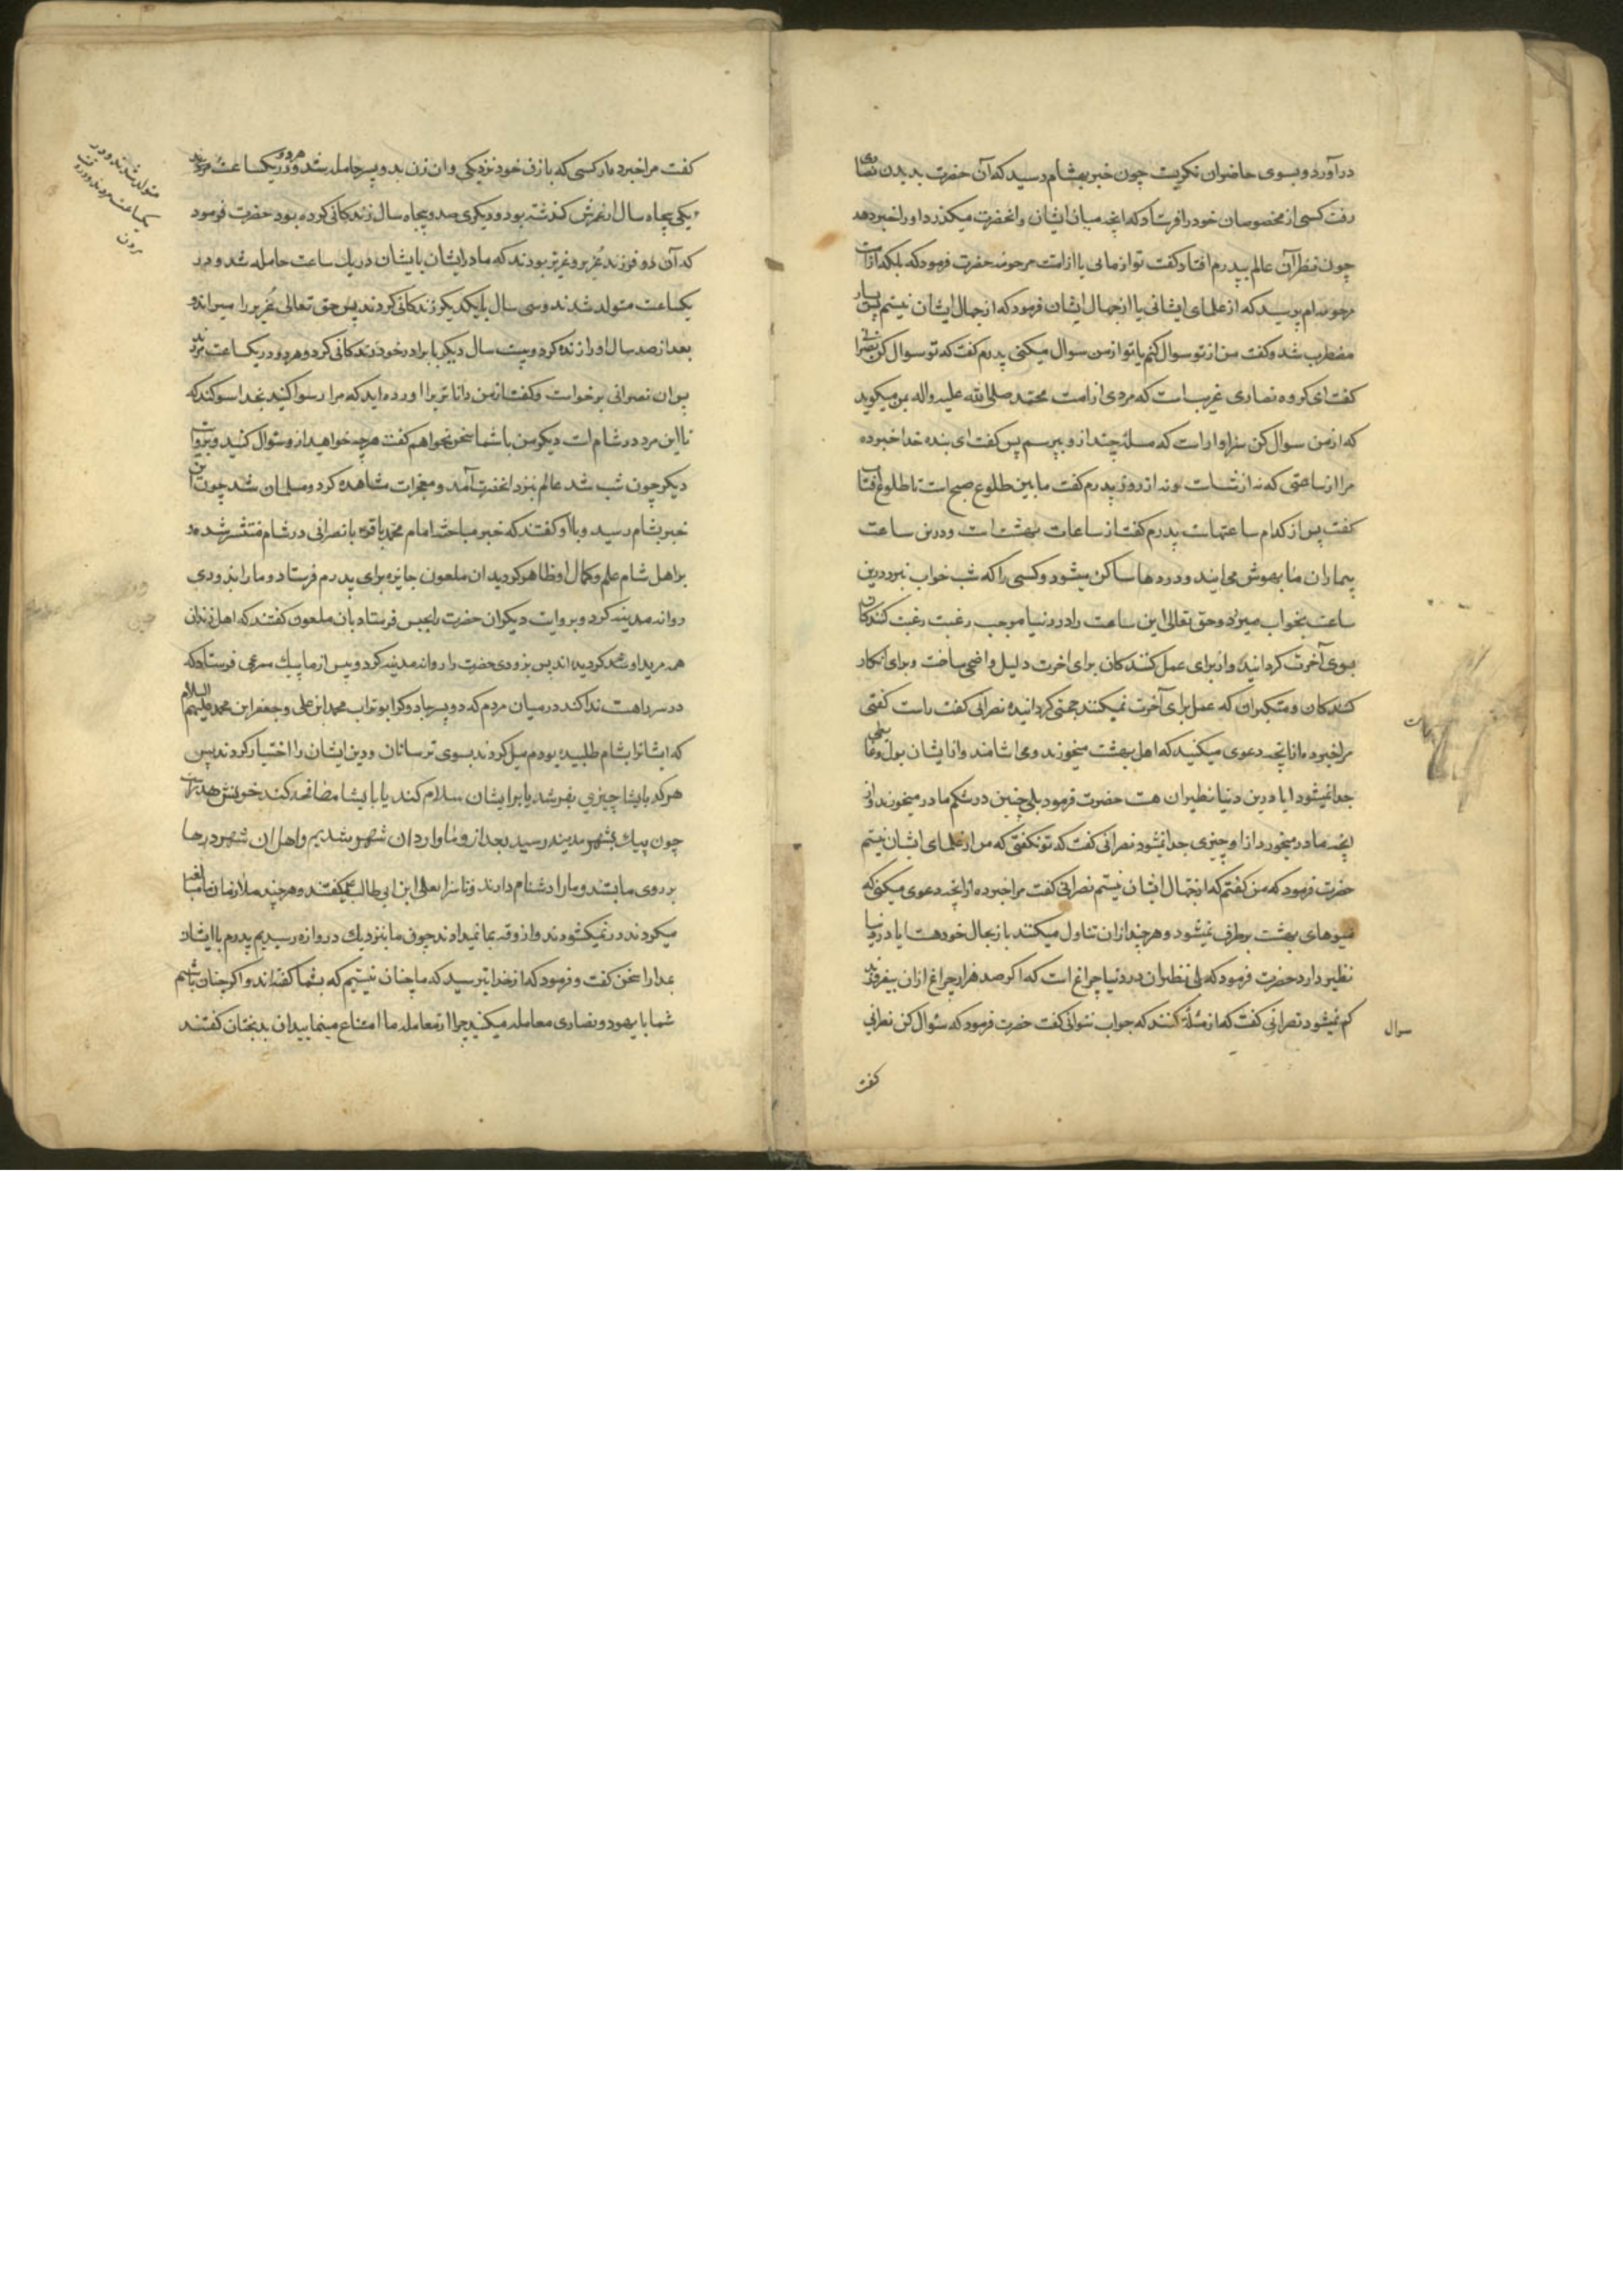 درآورد و بسوی حاضران نکریست چون خبر بهشام رسید که آن حضرت بدیدن نصاری
رفت کسی از مخصوصان خود را فرستاد که انچه میان ایشان و انحضرت میکذرد او را خبر دهد
چون نظر آن عالم بپدرم افتاد کفت تو از مائی یا از امت مرحومه حضرت فرمود که بلکه از امت
مرحومه ام پرسید که از علمای ایشانی یا از جهال ایشان فرمود که از جهال ایشان نیستم پس بسیار
مضطرب شد و کفت من از تو سوال کنم یا تو از من سوال میکنی پدرم کفت که تو سوال کن نصرانی
کفت ای کروه نصاری غریب است که مردی از امت محمد صلی الله علیه واله بمن میکوید
که از من سوال کن سزاوار است که مسئلهٔ چند از و بپرسم پس کفت ای بنده خدا خبر ده
مرا از ساعتی که نه از شب است و نه از روز پدرم کفت ما بین طلوع صبح است تا طلوع افتاب
کفت پس از کدام ساعتهاست پدرم کفت از ساعات بهشت است و درین ساعت
بیماران ما بهوش می ایند و دردها ساکن میشود و کسی را که شب خواب نبرد درین
ساعت بخواب میرود و حق تعالی این ساعت را در دنیا موجب رغبت رغبت کنندکان
بسوی آخرت کردانیده و از برای عمل کنندکان برای اخرت دلیل واضحی ساخت و برای انکار
کنندکان و متکبران که عمل برای آخرت نمیکنند حجتی کردانیده نصرانی کفت راست کفتی
مرا خبر ده از انچه دعوی میکنید که اهل بهشت میخورند و می اشامند و از ایشان بول و غایطی
جدا نمیشود ایا درین دنیا نظیر ان هست حضرت فرمود بلی جنین در شکم مادر میخورد از
انچه مادر میخورد و از او چیزی جدا نمیشود نصرانی کفت که تو نکفتی که من از علمای ایشان نیستم
حضرت فرمود که من کفتم که از جهال ایشان نیستم نصرانی کفت مرا خبر ده از انچه دعوی میکنی که
میوهای بهشت برطرف نمیشود و هر چند از ان تناول میکنند باز بحال خود هست ایا در دنیا
نظیر دارد حضرت فرمود که بلی نظیر ان در دنیا چراغ است که اکر صد هزار چراغ از ان بیفروزند
کم نمیشود نصرانی کفت که از مسئلهٔ کنند که جواب نتوانی کفت حضرت فرمود که سئوال کن نصرانی
سوال
کفت
کفت مرا خبر ده از کسی که با زن خود نزدیکی و ان زن بدو پسر حامله شد هر دو در یکساعت مردند
یکی پنجاه سال از عمرش کذشته بود و دیکری صد و پنجاه سال زندکانی کرده بود حضرت فرمود
که آن دو فرزند عُزیر و عزیز بودند که مادر ایشان بایشان در یك ساعت حامله شد و در
یکساعت متولد شدند و سی سال با یکدیکر زندکانی کردند پس حق تعالی عُزیر را میراند و
بعد از صد سال او را زنده کرد و بیست سال دیکر با برادر خود زندکانی کرد و هر دو در یکساعت مردند
پس ان نصرانی برخواست و کفت از من دانا تری را اورده اید که مرا رسوا کنید بخدا سوکند که
تا این مرد در شام است دیکر من با شما سخن نخواهم کفت هر چه خواهید از و سئوال کنید و بروایت
دیکر چون شب شد عالم نزد انحضرت آمد و معجزات مشاهده کرد و مسلمان شد چون این
خبر بهشام رسید و باو کفتند که خبر مباحثه امام محمد باقر با نصرانی در شام منتشر شده و
بر اهل شام علم و کمال او ظاهر کردید ان ملعون جایزه برای پدرم فرستاد و ما را بزودی
روانه مدینه کرد و بروایت دیکر ان حضرت را بحبس فرستاد بان ملعون کفتند که اهل زندان
همه مرید او شده کردیده اند پس بزودی حضرت را روانه مدینه کرد و پیش از ما پیك سرعی فرستاد که
در سر راهت ندا کند در میان مردم که دو پسر جادوکر ابو تراب محمد ابن علی و جعفر ابن محمد علیهم السلام
که ایشانرا بشام طلبیده بودم میل کردند بسوی ترسایان و دین ایشان را اختیار کردند پس
هر که بایشا چیزی بفرشد یا بر ایشان سلام کند یا بایشا مصافحه کند خونش هدر است
چون پیك بشهر مدین رسید بعد از و ما وارد ان شهر شدیم و اهل ان شهر درها
بر روی ما بستند و ما را دشنام دادند و ناسزا بعلی ابن ابی طالب ع کفتند و هر چند ملازمان ما مبالغه
میکردند در نمیکشودند و از وقه بما نمیدادند چون ما بنزدیك دروازه رسیدیم پدرم با ایشان
بمدارا سخن کفت و فرمود که از خدا بترسید که ما چنان نیستیم که بشما کفته اند و اکر چنان باشیم
شما با یهود و نصاری معامله میکنید چرا از معامله ما امتناع مینمایید ان بدبختان کفتند
متولد شدند و در
یکساعت مردند و در وقت
مردن